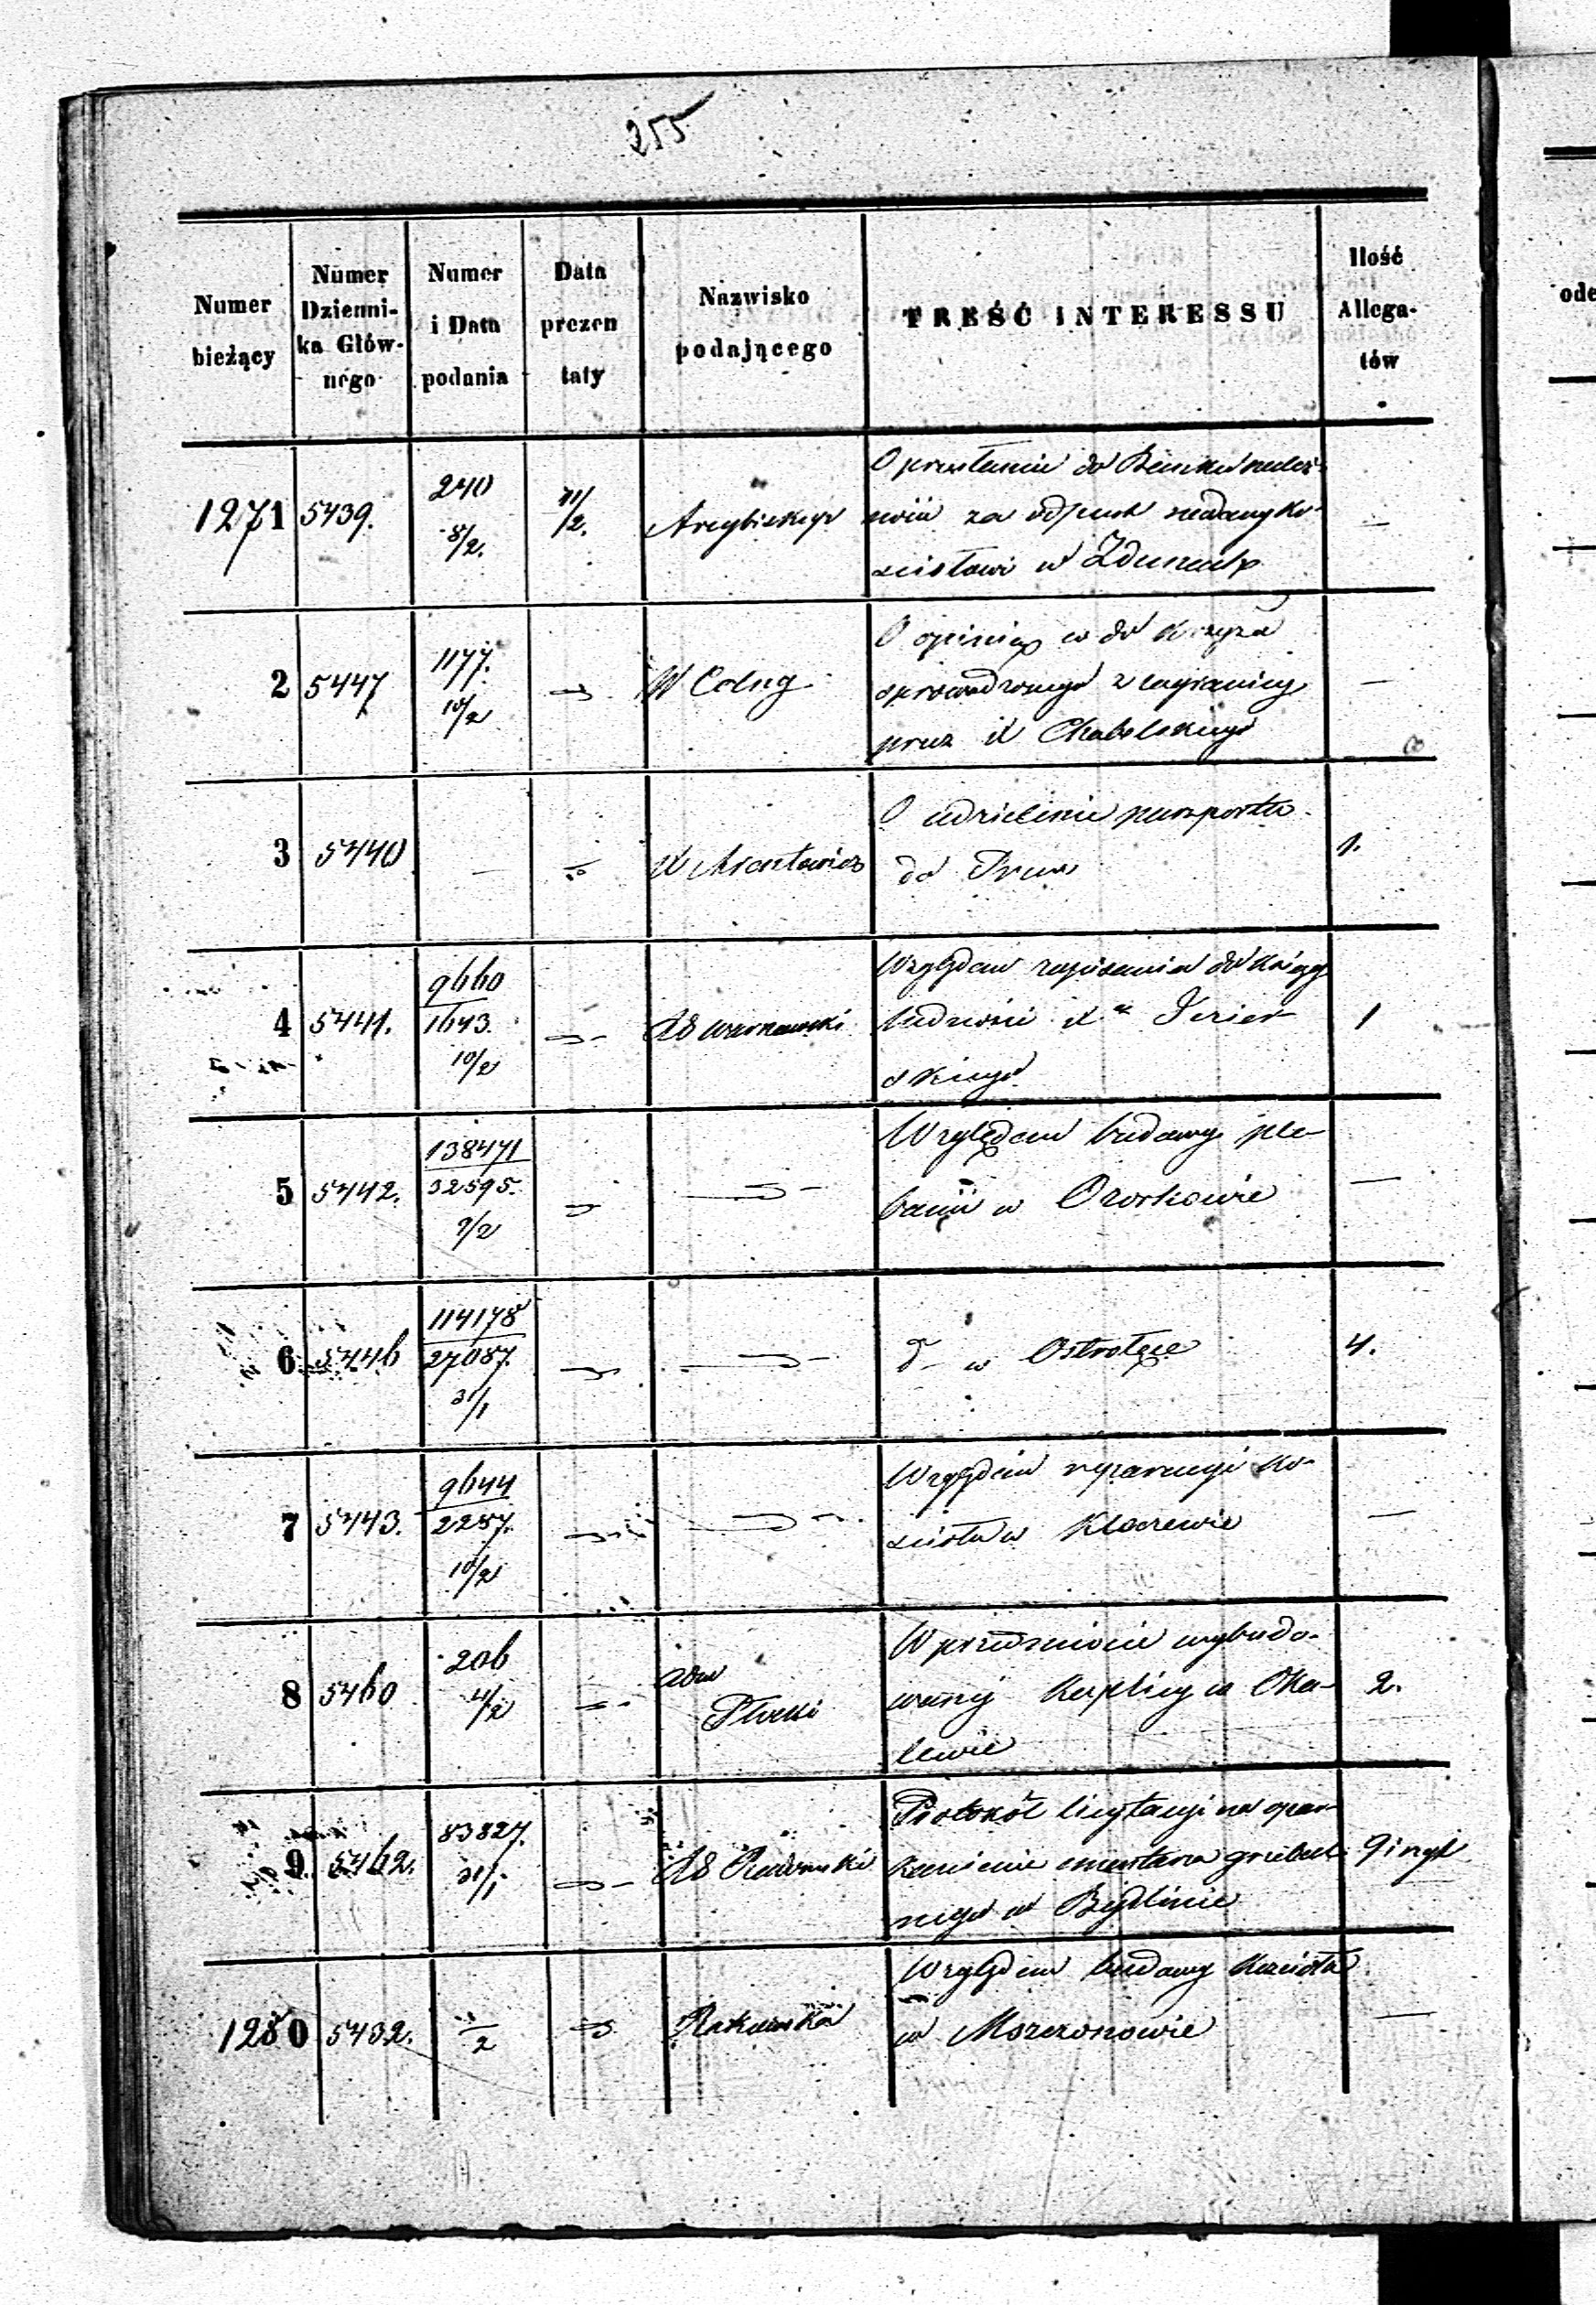 255
Numer bieżący
Numer Dzienni-ka Głów-nego
Numer i Data podania
Data prezen taty
Nazwisko podającego
TREŚĆ INTERESSU
Ilość Allega-tów
ode
1271 5439. 240 8/2. 11/2. Arcybiskup O przesłanie do Banku należ- —
za odpust nadany ko-
ściołowi w Zdunach
2 5447 1177. 10/2 W Celny O opinią w do Krzyża —
sprowadzonego z zagranicy
przez X Chabelskiego
3 5440 — X O udzielenie paszportu 1.
do Prus
4 5441. 9660 1643. 10/2 RG Warszawski Względem zapisania do księgi 1
ludności X Jezier-
skiego
5 5442. 138471 32595. 9/2 Względem budowy ple- —
banii w Ozorkowie
6 5446 114178 27087. 31/1 d- w Ostrołęce 4.
7 5443. 9644 2287. 10/2 Względem reparacyi ko- —
ścioła w Kłoczewie
8 5460 206 4/2 Adm W przedmiocie wybudo- 2.
Płocki wanej Kaplicy w Oka-
lewie
9 5462. 83827. 31/1 RG Radomski Protokół licytacyi na opar-
kanienie cmentarza grzebal-
nego w Bydlinie
1280 5432. /2 Rakowska Względem budowy Kościoła —
w Mozczonowie